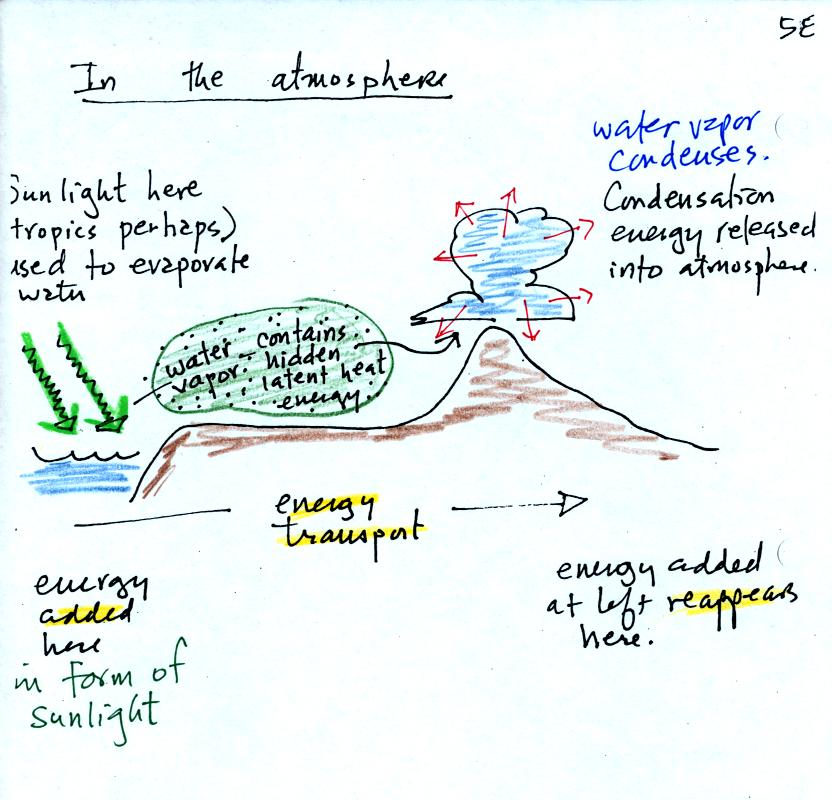 5E
In the atmosphere
water vapor
condenses.
Condensation
energy released
into atmosphere.
Sunlight here
(tropics perhaps)
used to evaporate
water
water vapor
contains hidden latent heat energy
energy
transport
energy
added
here
in form of
sunlight
energy added
at left reappears
here.